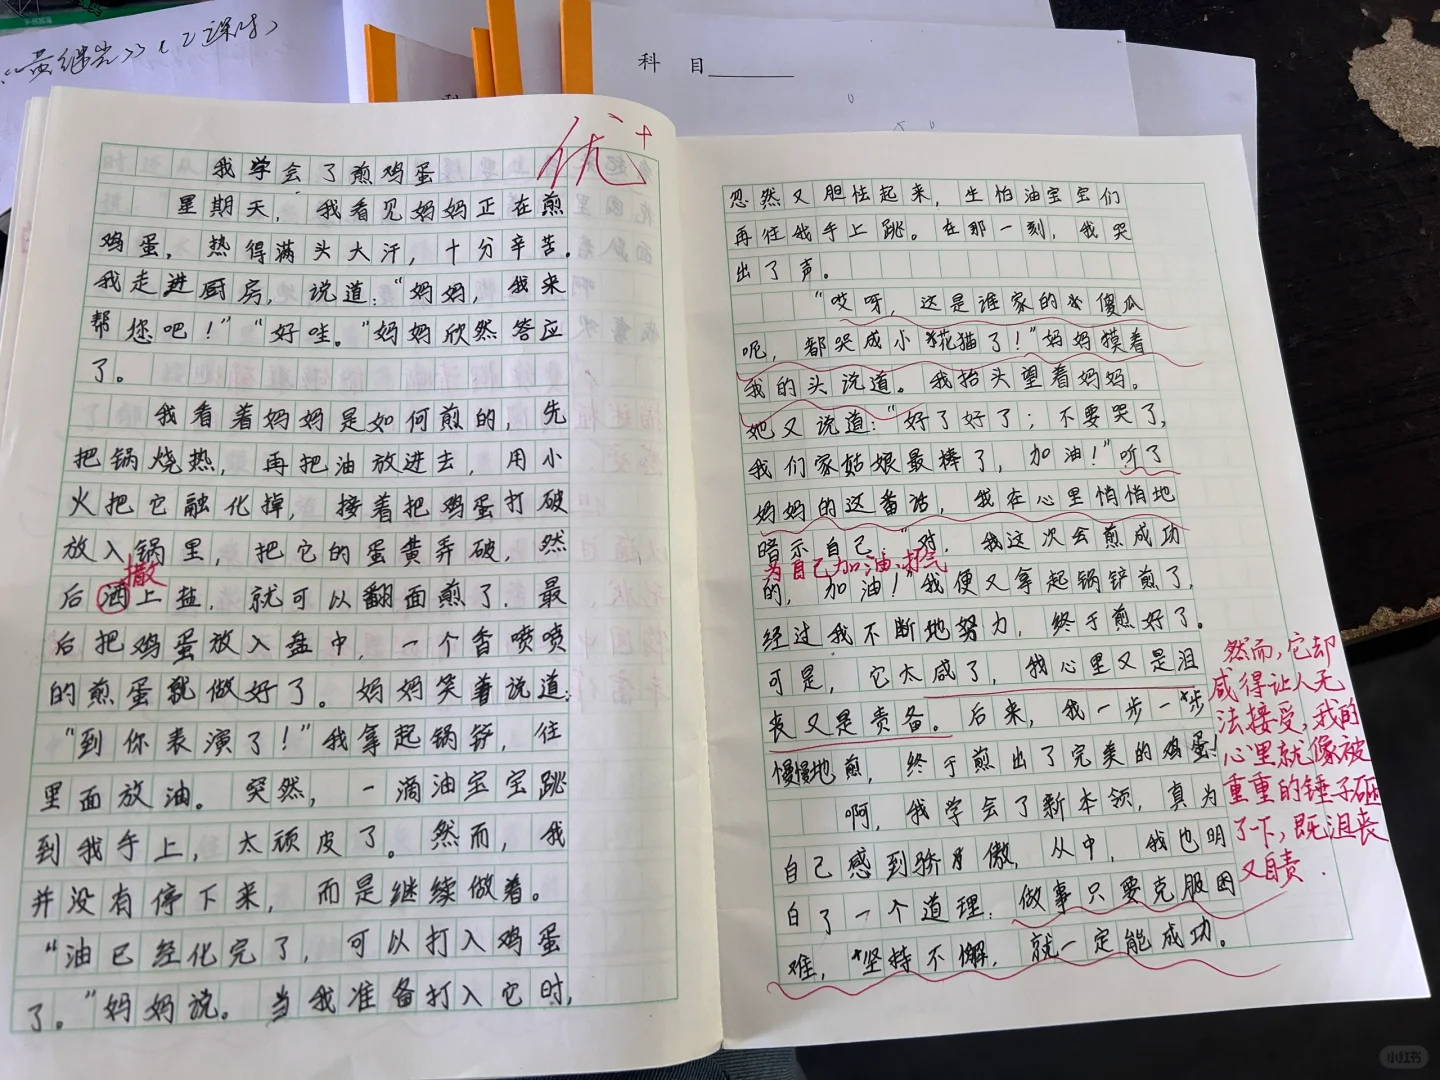 《黄继光》(2课时)
科 目
优+
我学会了煎鸡蛋
星期天，我看见妈妈正在煎
鸡蛋，热得满头大汗，十分辛苦.
我走进厨房，说道："妈妈，我来
帮您吧！""好哇。"妈妈欣然答应
了。
我看着妈妈是如何煎的，先
把锅烧热，再把油放进去，用小
火把它融化掉，接着把鸡蛋打破
放入锅里，把它的蛋黄弄破，然
撒
后洒上盐，就可以翻面煎了．最
后把鸡蛋放入盘中，一个香喷喷
的煎蛋就做好了。妈妈笑着说道：
"到你表演了！"我拿起锅铲，往
里面放油。突然，一滴油宝宝跳
到我手上，太顽皮了。然而，我
并没有停下来，而是继续做着。
"油已经化完了，可以打入鸡蛋
了。"妈妈说。当我准备打入它时，
忽然又胆怯起来，生怕油宝宝们
再往我手上跳。在那一刻，我哭
出了声。
"哎呀，这是谁家的傻瓜
呢，都哭成小花猫了！"妈妈摸着
我的头说道。我抬头望着妈妈。
她又说道："好了好了；不要哭了，
我们家姑娘最棒了，加油！"听了
妈妈的这番话，我在心里悄悄地
暗示自己："对，我这次会煎成功
为自己加油、打气
的，加油！"我便又拿起锅铲煎了，
经过我不断地努力，终于煎好了。
可是，它太咸了，我心里又是沮
丧又是责备。后来，我一步一步
慢慢地煎，终于煎出了完美的鸡蛋！
啊，我学会了新本领，真为
自己感到骄傲，从中，我也明
白了一个道理：做事只要克服困
难，坚持不懈，就一定能成功。
然而，它却
咸得让人无
法接受，我的
心里就像被
重重的锤子砸
了一下，既沮丧
又自责．
小红书